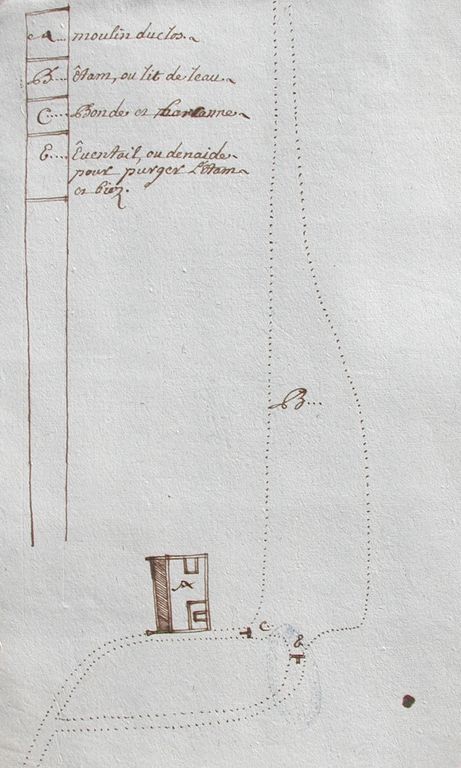 A.... moulin du clos.
B.... êtam, ou lit de leau.
C.... Bonde et
E.... Êventail, ou denaide
pour purger L'êtam
et biez.
B...
A
C
E